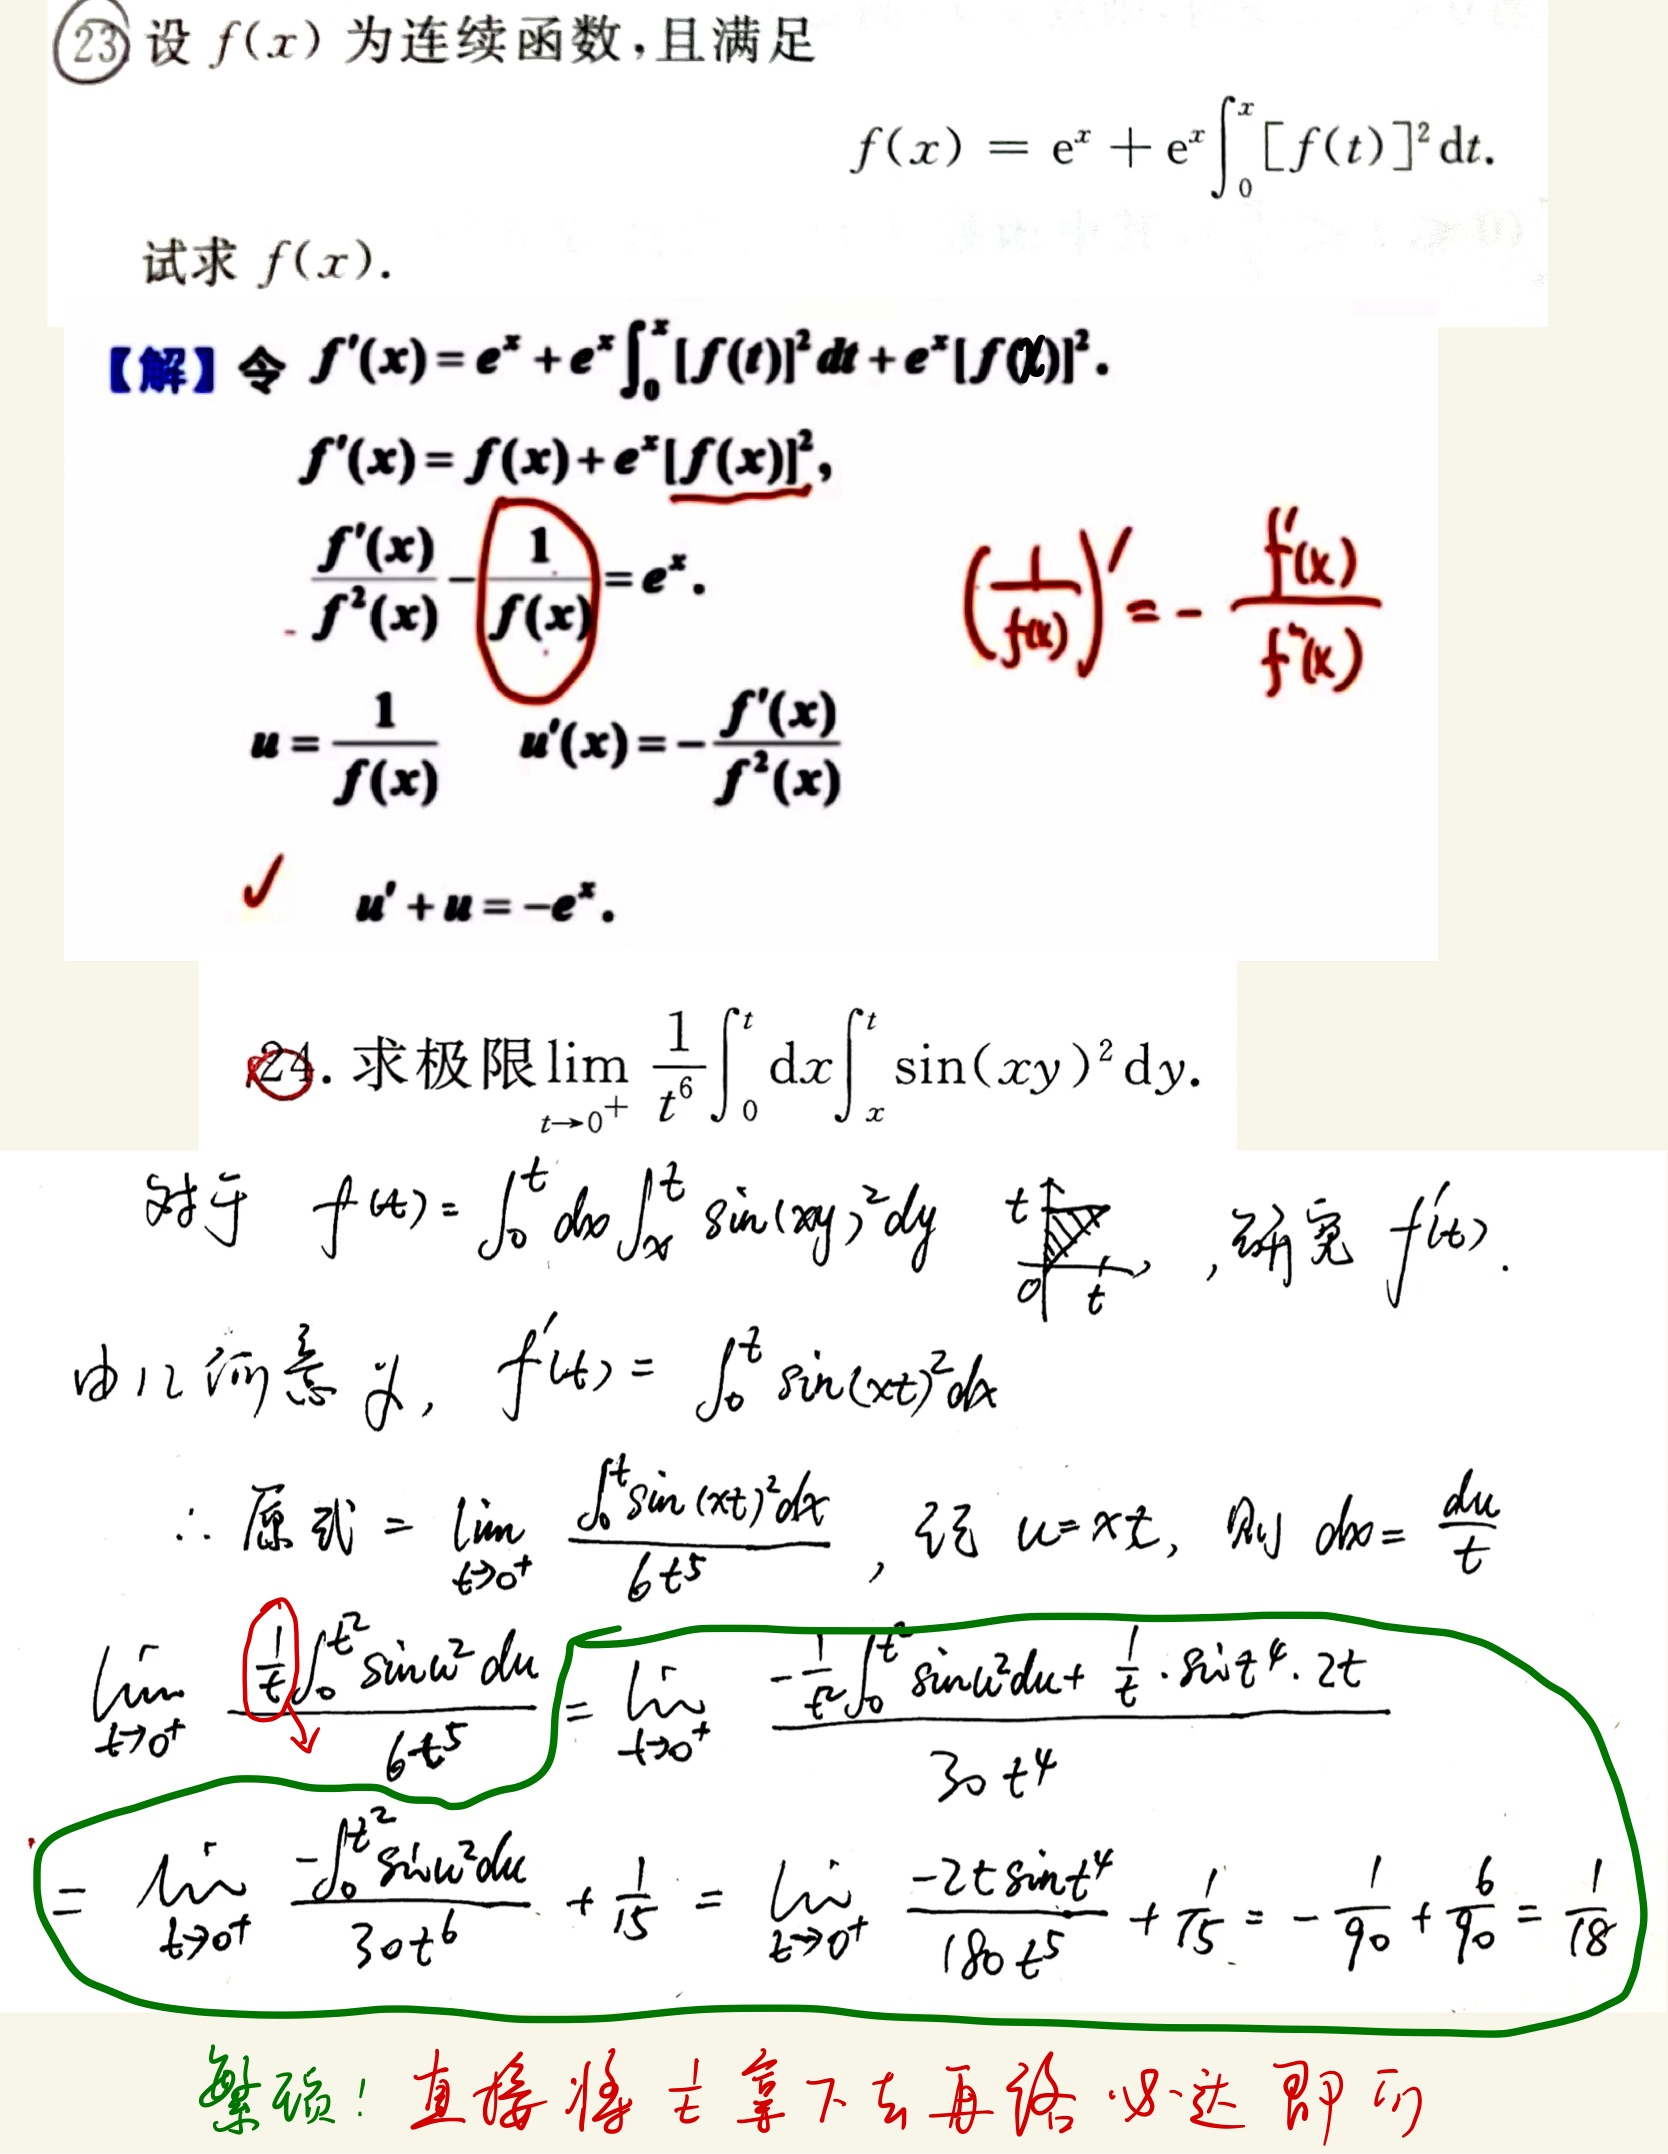 23 设 f(x) 为连续函数,且满足
f(x) = e^x + e^x ∫_0^x [f(t)]² dt.
试求 f(x).
【解】令 f'(x) = e^x + e^x ∫_0^x [f(t)]² dt + e^x [f(x)]².
f'(x) = f(x) + e^x [f(x)]²,
f'(x)/f²(x) − 1/f(x) = e^x.
(1/f(x))' = − f'(x)/f²(x)
u = 1/f(x)  u'(x) = − f'(x)/f²(x)
✓ u' + u = −e^x.
24. 求极限 lim_{t→0⁺} 1/t⁶ ∫_0^t dx ∫_x^t sin(xy)² dy.
对于 f(t) = ∫_0^t dx ∫_x^t sin(xy)² dy  t 0 t ,研究 f'(t).
由几何意义, f'(t) = ∫_0^t sin(xt)² dx
∴ 原式 = lim_{t→0⁺} ∫_0^t sin(xt)² dx / 6t⁵ , 记 u = xt, 则 dx = du/t
lim_{t→0⁺} (1/t ∫_0^{t²} sin u² du) / 6t⁵ = lim_{t→0⁺} (−1/t² ∫_0^{t²} sin u² du + 1/t · sin t⁴ · 2t) / 30t⁴
= lim_{t→0⁺} (−∫_0^{t²} sin u² du) / 30t⁶ + 1/15 = lim_{t→0⁺} (−2t sin t⁴) / 180t⁵ + 1/15 = −1/90 + 6/90 = 1/18
繁琐! 直接将 1/t 拿下去再洛必达即可